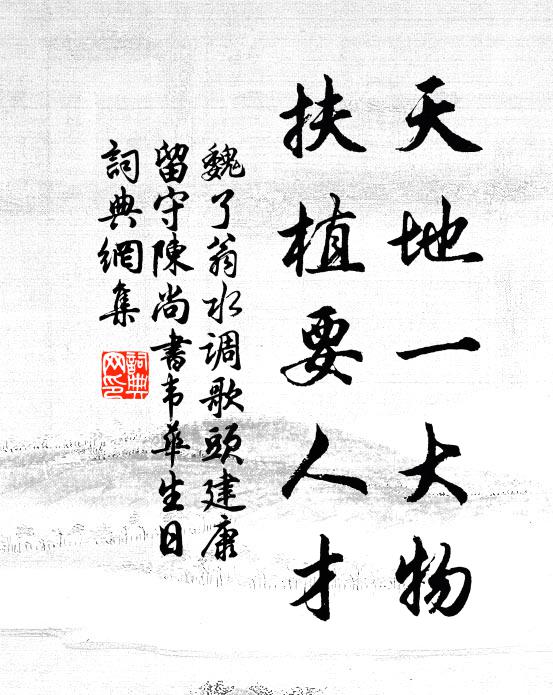 天地一大物
扶植要人才
魏了翁水调歌頭建康
留守陳尚書韦華生日
詞典網集
詞典
网印